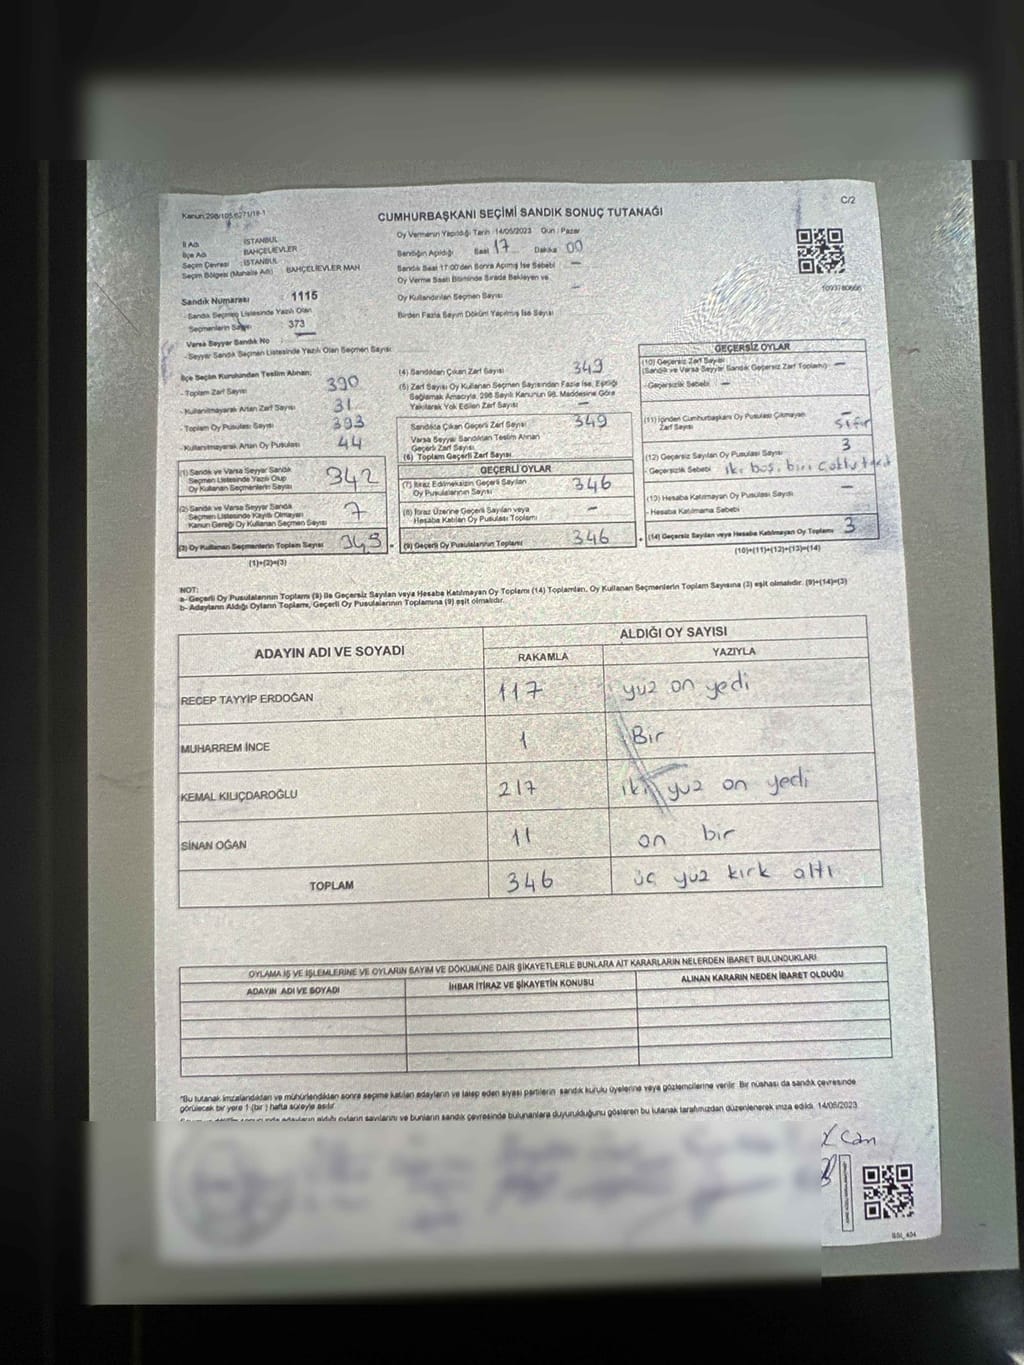 Kanun:298/105,6271/18-1
C/2
CUMHURBAŞKANI SEÇİMİ SANDIK SONUÇ TUTANAĞI
İl Adı : İSTANBUL
İlçe Adı : BAHÇELİEVLER
Seçim Çevresi : İSTANBUL
Seçim Bölgesi (Mahalle Adı) : BAHÇELİEVLER MAH
Sandık Numarası : 1115
- Sandık Seçmen Listesinde Yazılı Olan
Seçmenlerin Sayısı : 373
Varsa Seyyar Sandık No
- Seyyar Sandık Seçmen Listesinde Yazılı Olan Seçmen Sayısı
Oy Vermenin Yapıldığı Tarih : 14/05/2023 Gün : Pazar
Sandığın Açıldığı Saat 17 Dakika 00
Sandık Saat 17:00'den Sonra Açılmış İse Sebebi —
Oy Verme Saati Bitiminde Sırada Bekleyen ve
Oy Kullandırılan Seçmen Sayısı —
Birden Fazla Sayım Döküm Yapılmış İse Sayısı
İlçe Seçim Kurulundan Teslim Alınan;
- Toplam Zarf Sayısı 390
- Kullanılmayarak Artan Zarf Sayısı 31
- Toplam Oy Pusulası Sayısı 393
- Kullanılmayarak Artan Oy Pusulası 44
(1) Sandık ve Varsa Seyyar Sandık
Seçmen Listesinde Yazılı Olup
Oy Kullanan Seçmenlerin Sayısı 342
(2) Sandık ve Varsa Seyyar Sandık
Seçmen Listesinde Kayıtlı Olmayan
Kanun Gereği Oy Kullanan Seçmen Sayısı 7
(3) Oy Kullanan Seçmenlerin Toplam Sayısı 349
(1)+(2)=(3)
(4) Sandıktan Çıkan Zarf Sayısı 349
(5) Zarf Sayısı Oy Kullanan Seçmen Sayısından Fazla İse, Eşitliği
Sağlamak Amacıyla, 298 Sayılı Kanunun 98. Maddesine Göre
Yakılarak Yok Edilen Zarf Sayısı —
Sandıkta Çıkan Geçerli Zarf Sayısı 349
Varsa Seyyar Sandıktan Teslim Alınan
Geçerli Zarf Sayısı
(6) Toplam Geçerli Zarf Sayısı
GEÇERLİ OYLAR
(7) İtiraz Edilmeksizin Geçerli Sayılan
Oy Pusulalarının Sayısı 346
(8) İtiraz Üzerine Geçerli Sayılan veya
Hesaba Katılan Oy Pusulası Toplamı —
(9) Geçerli Oy Pusulalarının Toplamı 346
GEÇERSİZ OYLAR
(10) Geçersiz Zarf Sayısı
(Sandık ve Varsa Seyyar Sandık Geçersiz Zarf Toplamı) —
- Geçersizlik Sebebi —
(11) İçinden Cumhurbaşkanı Oy Pusulası Çıkmayan
Zarf Sayısı — Sıfır
(12) Geçersiz Sayılan Oy Pusulası Sayısı 3
- Geçersizlik Sebebi iki boş, biri
(13) Hesaba Katılmayan Oy Pusulası Sayısı —
- Hesaba Katılmama Sebebi
(14) Geçersiz Sayılan veya Hesaba Katılmayan Oy Toplamı 3
(10)+(11)+(12)+(13)=(14)
NOT:
a- Geçerli Oy Pusulalarının Toplamı (9) ile Geçersiz Sayılan veya Hesaba Katılmayan Oy Toplamı (14) Toplamları, Oy Kullanan Seçmenlerin Toplam Sayısına (3) eşit olmalıdır. (9)+(14)=(3)
b- Adayların Aldığı Oyların Toplamı, Geçerli Oy Pusulalarının Toplamına (9) eşit olmalıdır.
ADAYIN ADI VE SOYADI
ALDIĞI OY SAYISI
RAKAMLA
YAZIYLA
RECEP TAYYİP ERDOĞAN 117 yüz on yedi
MUHARREM İNCE 1 Bir
KEMAL KILIÇDAROĞLU 217 iki yüz on yedi
SİNAN OĞAN 11 on bir
TOPLAM 346 üç yüz kırk altı
OYLAMA İŞ VE İŞLEMLERİNE VE OYLARIN SAYIM VE DÖKÜMÜNE DAİR ŞİKAYETLERLE BUNLARA AİT KARARLARIN NELERDEN İBARET BULUNDUKLARI
ADAYIN ADI VE SOYADI
İHBAR İTİRAZ VE ŞİKAYETİN KONUSU
ALINAN KARARIN NEDEN İBARET OLDUĞU
"Bu tutanak imzalandıktan ve mühürlendikten sonra seçime katılan adayların ve talep eden siyasi partilerin sandık kurulu üyelerine veya gözlemcilerine verilir. Bir nüshası da sandık çevresinde
görülecek bir yere 1 (bir) hafta süreyle asılır.
adayların aldığı oyların sayılarını ve bunların sandık çevresinde bulunanlara duyurulduğunu gösteren bu tutanak tarafımızdan düzenlenerek imza edildi. 14/05/2023
Can